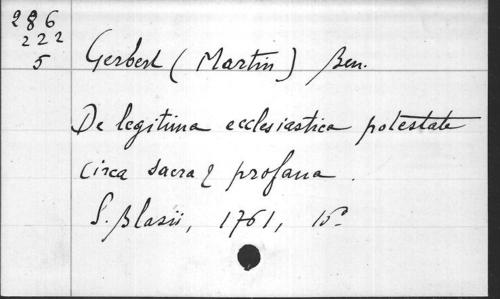 286
222
5
Gerbert (Martin) Ben.
De legitima ecclesiastica potestate
circa sacra & profana.
S. Blasii, 1761, 16°